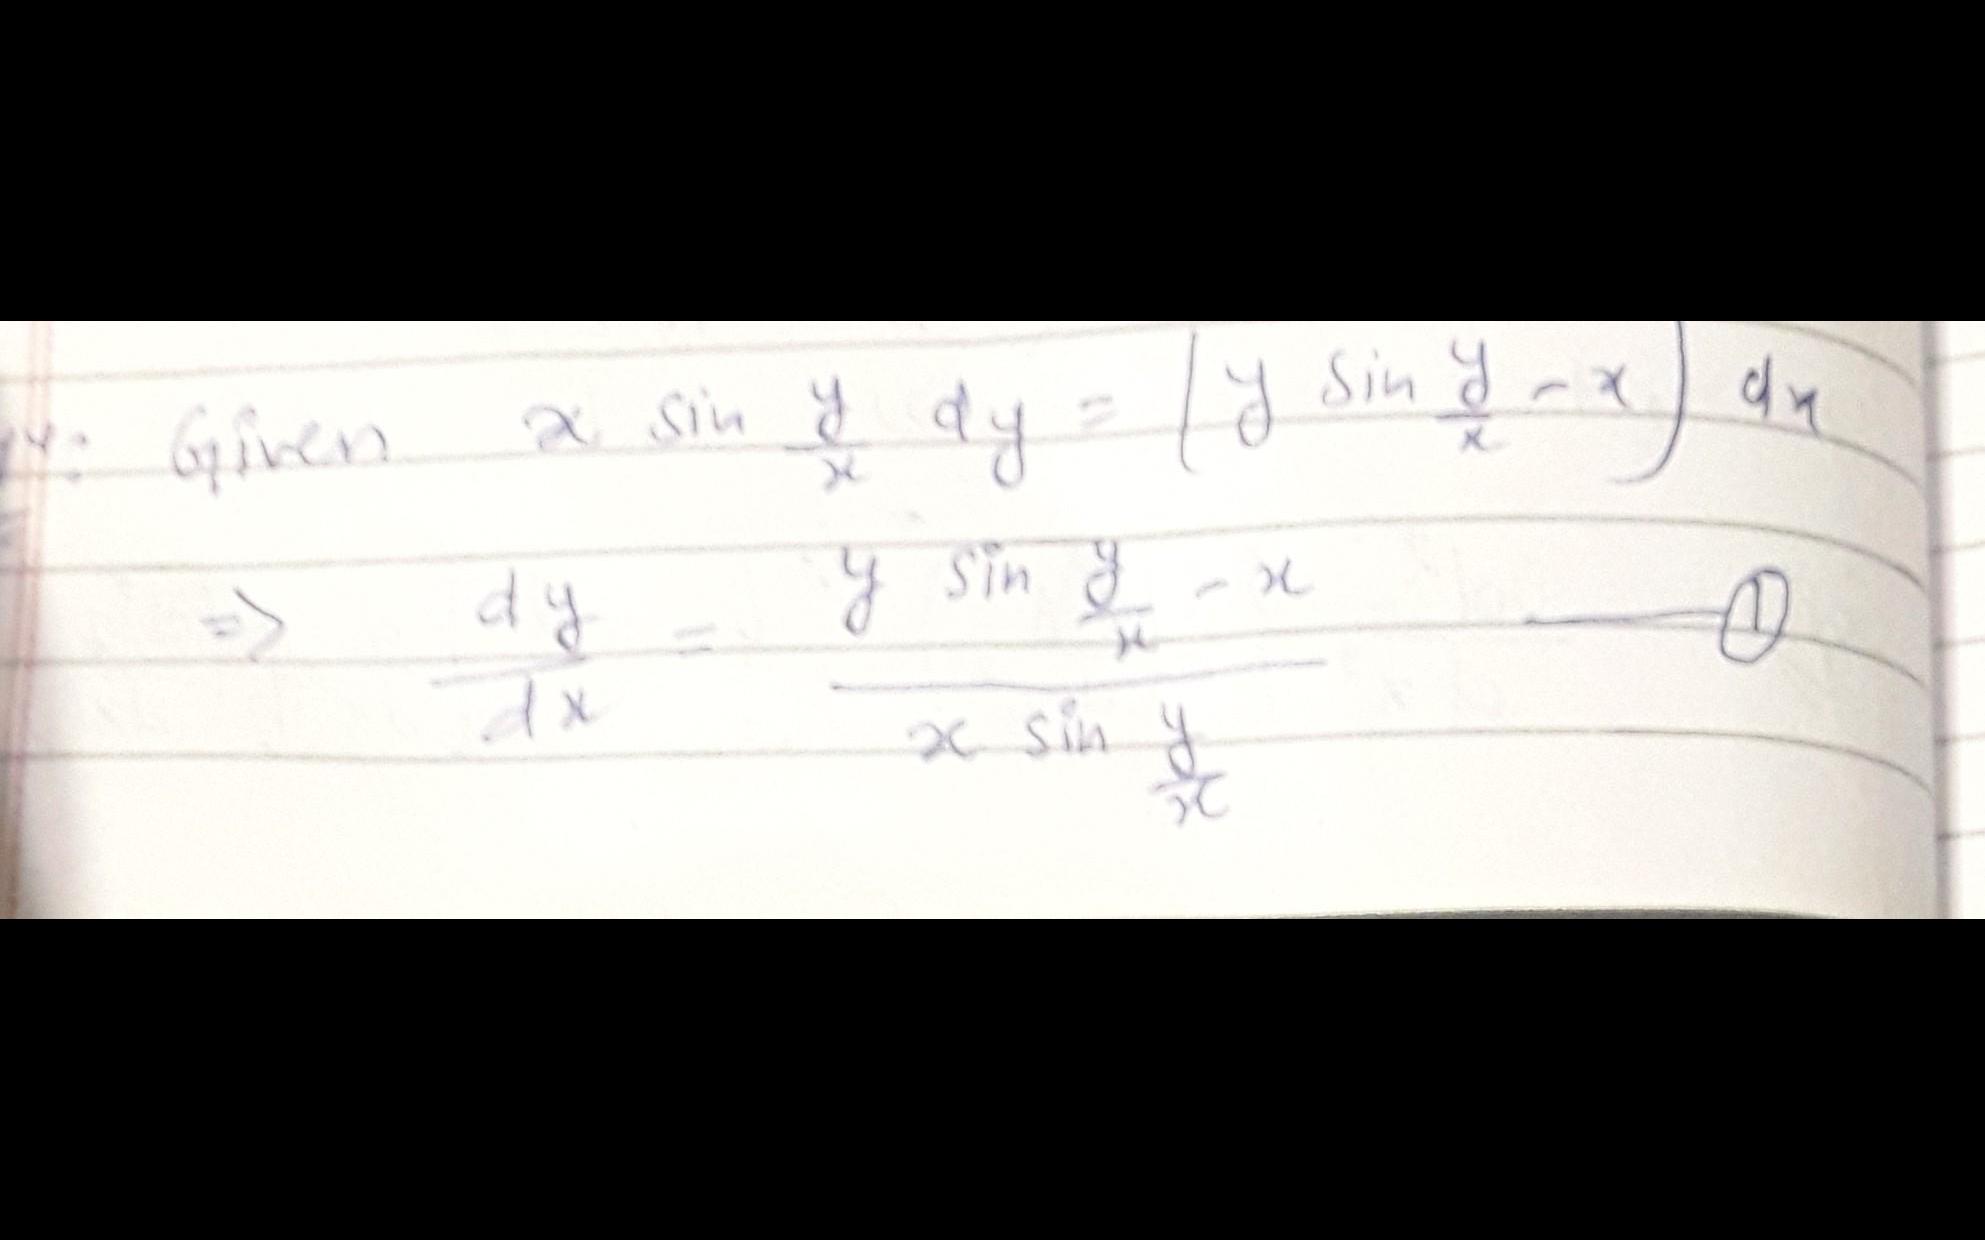 Given x sin y/x dy = (y sin y/x - x) dx
=> dy/dx = (y sin y/x - x)/(x sin y/x) — ①